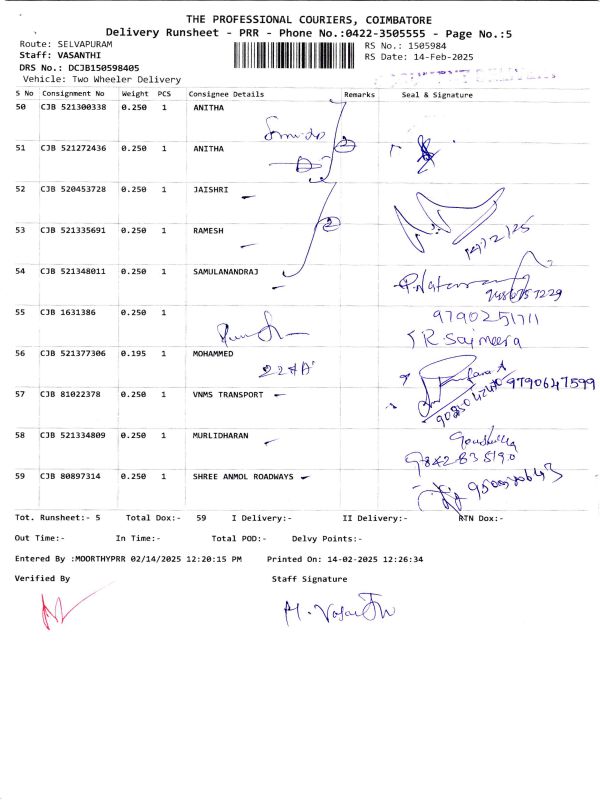 THE PROFESSIONAL COURIERS, COIMBATORE
Delivery Runsheet - PRR - Phone No.:0422-3505555 - Page No.:5
Route: SELVAPURAM RS No.: 1505984
Staff: VASANTHI RS Date: 14-Feb-2025
DRS No.: DCJB150598405
Vehicle: Two Wheeler Delivery
S No Consignment No Weight PCS Consignee Details Remarks Seal & Signature
50 CJB 521300338 0.250 1 ANITHA
2
51 CJB 521272436 0.250 1 ANITHA
52 CJB 520453728 0.250 1 JAISHRI
2
53 CJB 521335691 0.250 1 RAMESH
14/2/25
54 CJB 521348011 0.250 1 SAMULANANDRAJ
55 CJB 1631386 0.250 1 9790251711
56 CJB 521377306 0.195 1 MOHAMMED
9790647599
57 CJB 81022378 0.250 1 VNMS TRANSPORT
58 CJB 521334809 0.250 1 MURLIDHARAN
9842835190
59 CJB 80897314 0.250 1 SHREE ANMOL ROADWAYS
Tot. Runsheet:- 5 Total Dox:- 59 I Delivery:- II Delivery:- RTN Dox:-
Out Time:- In Time:- Total POD:- Delvy Points:-
Entered By :MOORTHYPRR 02/14/2025 12:20:15 PM Printed On: 14-02-2025 12:26:34
Verified By Staff Signature